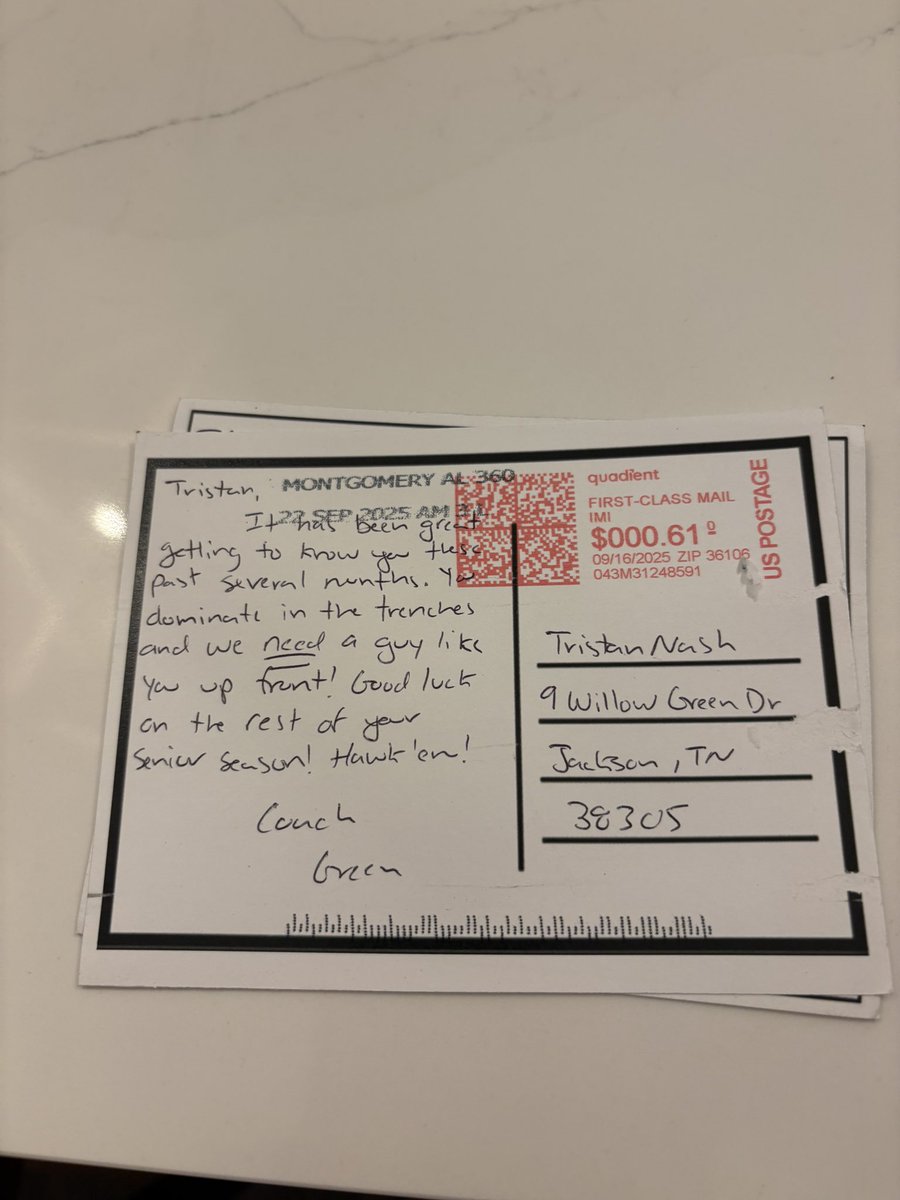 Tristan,
MONTGOMERY AL 360
22 SEP 2025 AM 3 L
It has been great
getting to know you these
past several months. You
dominate in the trenches
and we need a guy like
you up front! Good luck
on the rest of your
senior season! Hawk'em!
Coach
Green
quadient
FIRST-CLASS MAIL
IMI
$000.61 0
09/16/2025 ZIP 36106
043M31248591
US POSTAGE
Tristan Nash
9 Willow Green Dr
Jackson, TN
38305